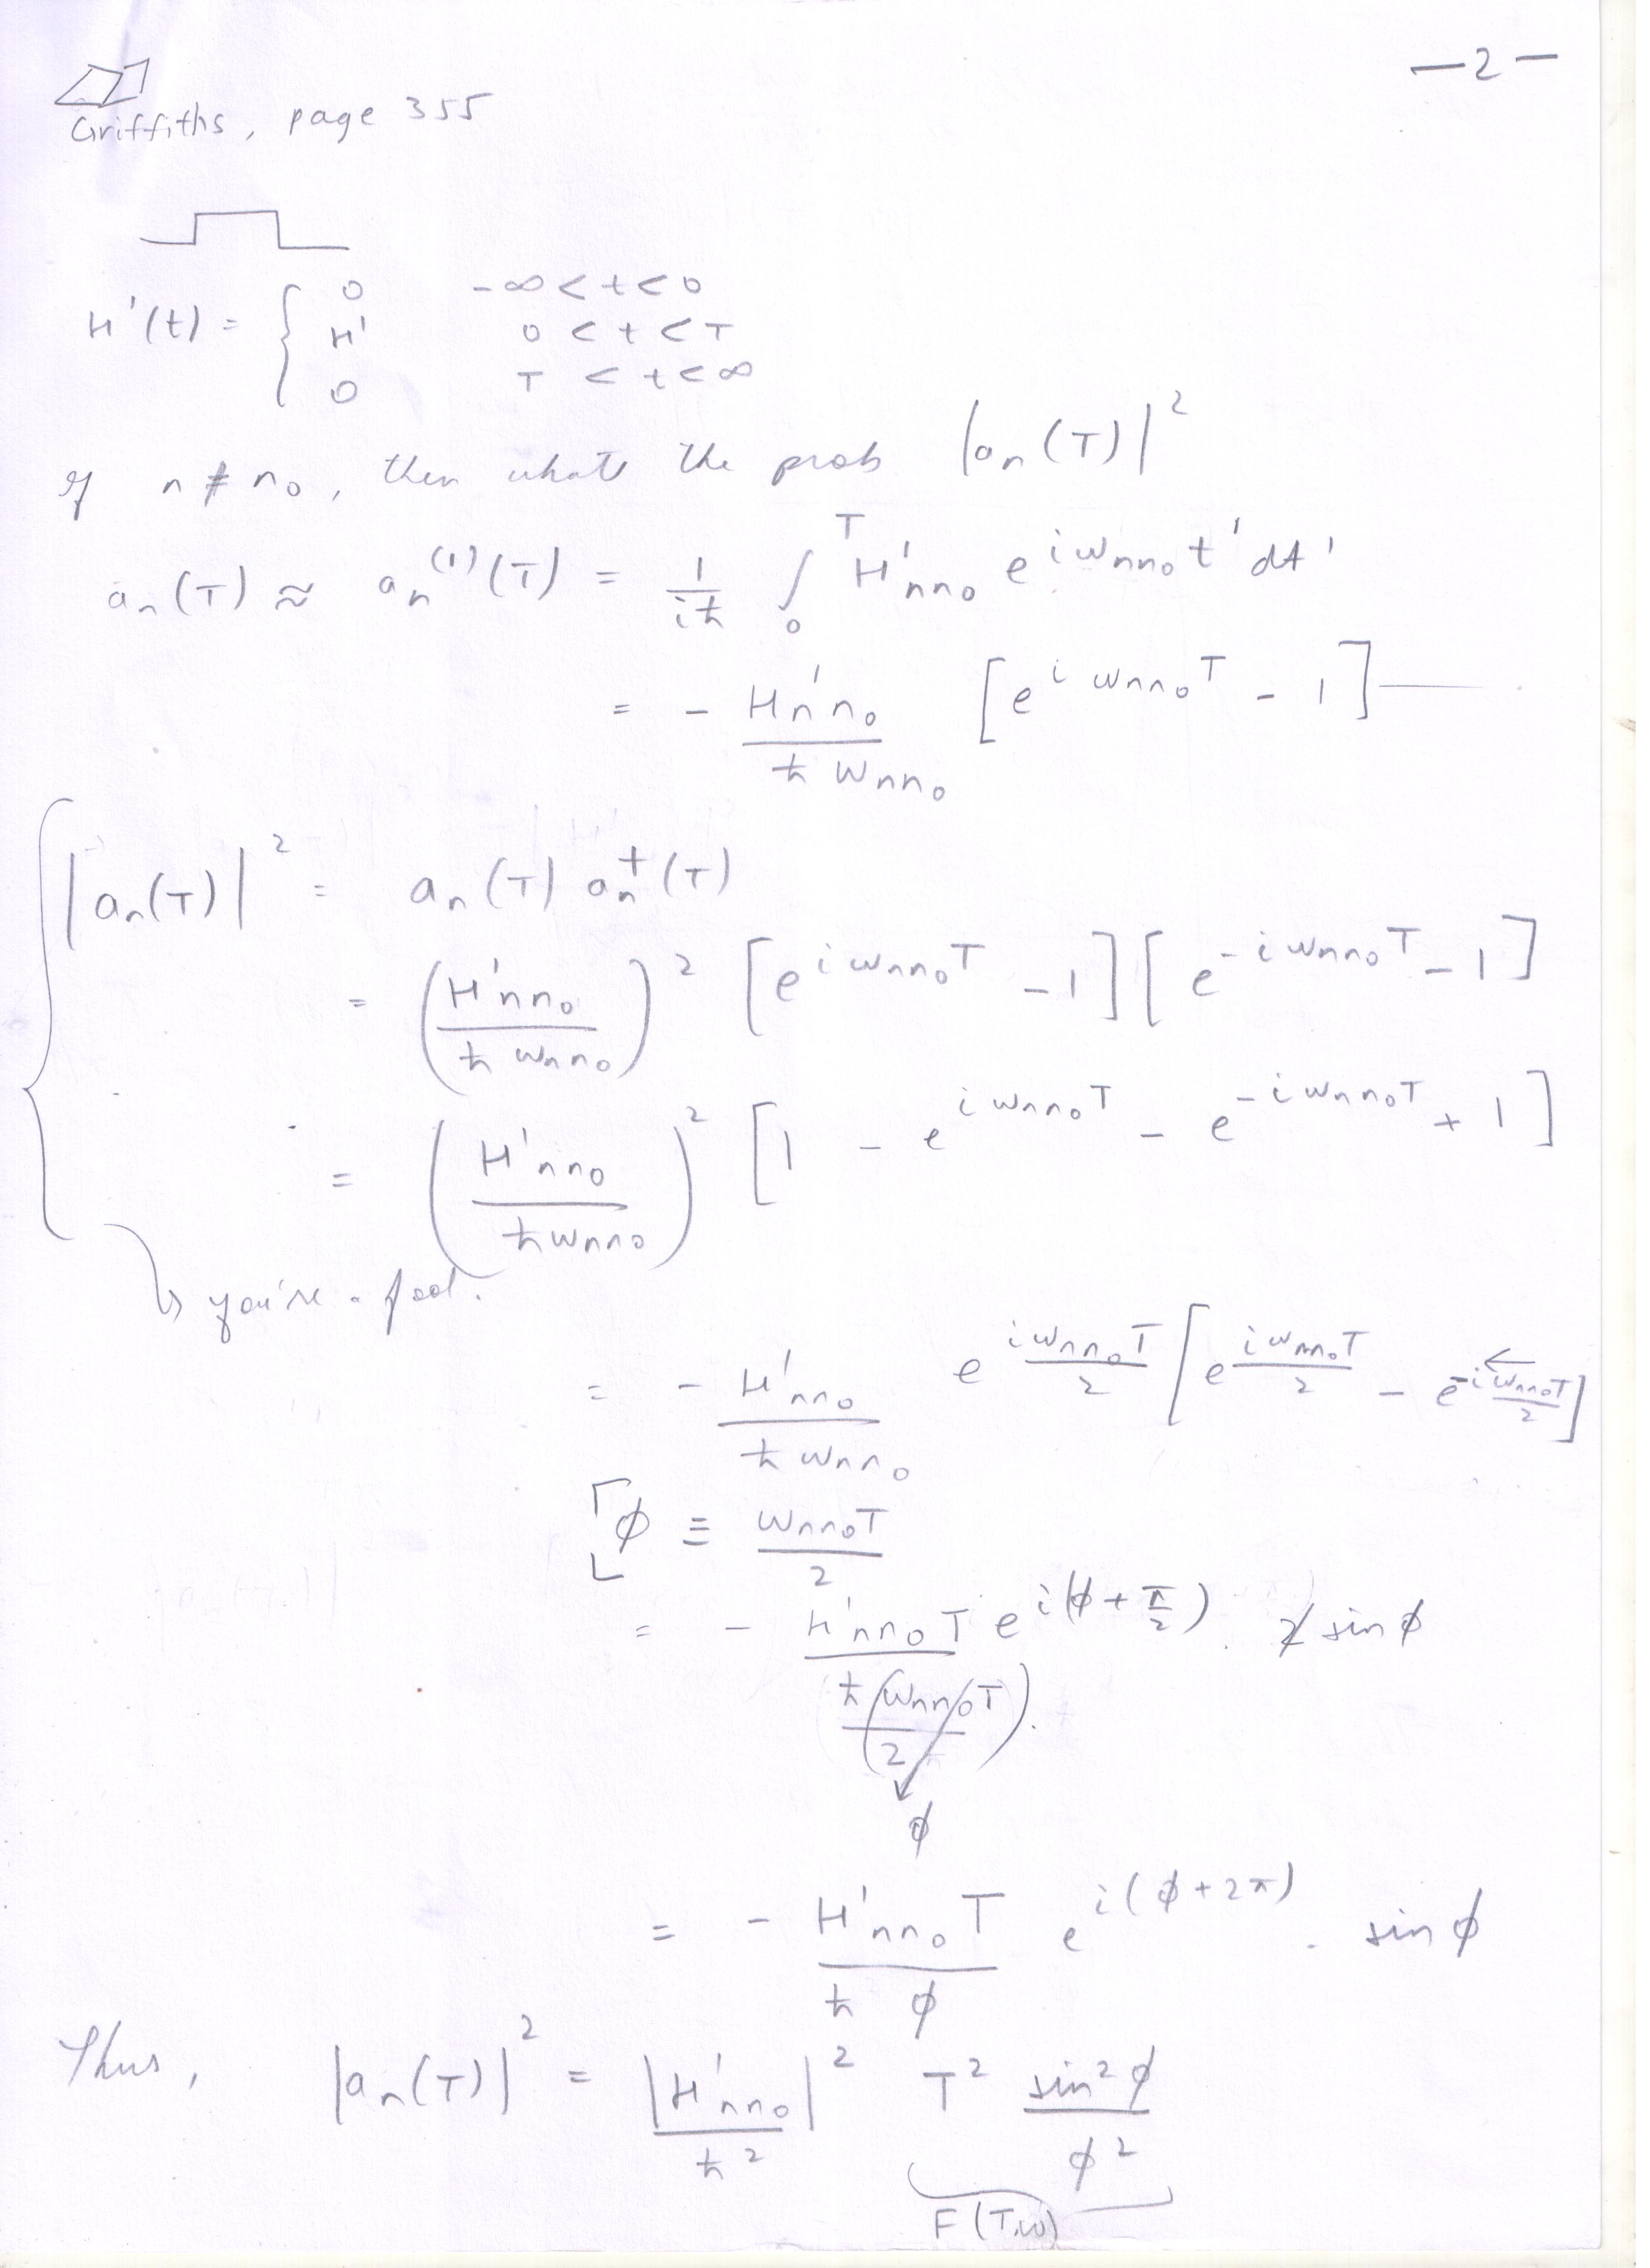 — 2 —
Griffiths, page 355
H'(t) = { 0 -∞ < t < 0
H' 0 < t < T
0 T < t < ∞
If n ≠ n₀, then whats the prob |aₙ(T)|²
aₙ(T) ≈ aₙ⁽¹⁾(T) = 1/iħ ∫₀ᵀ H'ₙₙ₀ e^{iωₙₙ₀t'} dt'
= - H'ₙₙ₀/ħωₙₙ₀ [e^{iωₙₙ₀T} - 1]
|aₙ(T)|² = aₙ(T) aₙ†(T)
= (H'ₙₙ₀/ħωₙₙ₀)² [e^{iωₙₙ₀T} - 1][e^{-iωₙₙ₀T} - 1]
= (H'ₙₙ₀/ħωₙₙ₀)² [1 - e^{iωₙₙ₀T} - e^{-iωₙₙ₀T} + 1]
↳ you're a fool.
= - H'ₙₙ₀/ħωₙₙ₀ e^{iωₙₙ₀T/2} [e^{iωₙₙ₀T/2} - e^{-iωₙₙ₀T/2}]
ϕ ≡ ωₙₙ₀T/2
= - H'ₙₙ₀T/ħ(ωₙₙ₀T/2) e^{i(ϕ+π/2)} . 2 sin ϕ
ϕ
= - H'ₙₙ₀T/ħϕ e^{i(ϕ+2π)} . sin ϕ
Thus, |aₙ(T)|² = |H'ₙₙ₀|²/ħ² T² sin²ϕ/ϕ²
F(T,ω)